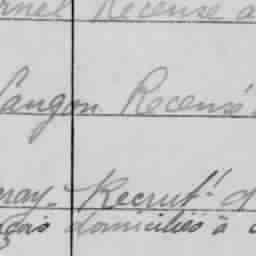 rnel Recensé a
Langon Recensé
nay. Recrut.t d
çais domiciliés à